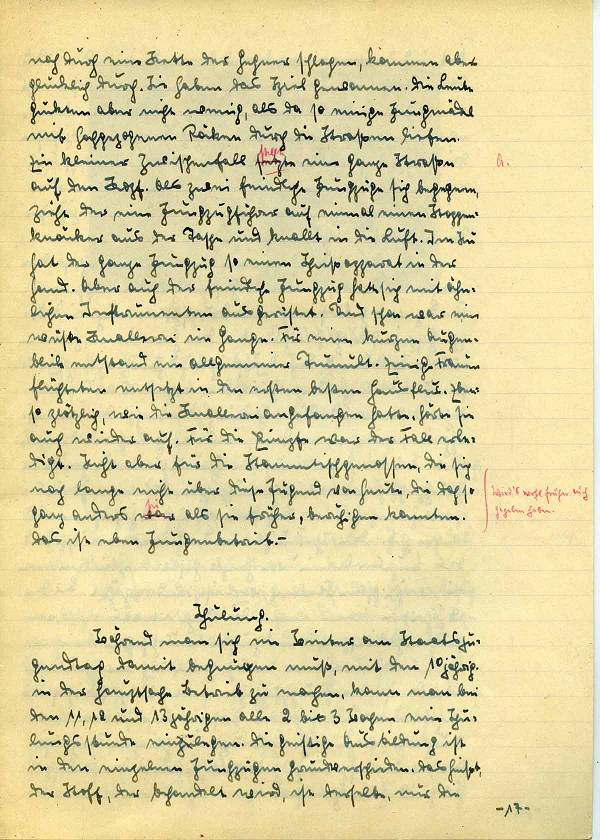 noch durch eine Kette der Gegner schlagen, kommen aber
glücklich durch. Sie haben das Spiel gewonnen. Die Leute
guckten aber nicht wenig, als da so einige Jungmädel
mit hochgezogenen Röcken durch die Straßen liefen.
Ein kleiner Zwischenfall setzte eine ganze Straße
stellte
A.
auf den Kopf. Als zwei feindliche Jungzüge sich begegnen,
zieht der eine Jungzugführer auf einmal einen Stoppen-
knacker aus der Tasche und knallt in die Luft. Im Nu
hat der ganze Jungzug so einen Schießapparat in der
Hand. Aber auch der feindliche Jungzug hatte sich mit ähn-
lichen Instrumenten ausgerüstet. Und schon war eine
wüste Knallerei im Gange. Für einen kurzen Augen-
blick entstand ein allgemeiner Tumult. Einige Frauen
flüchteten entsetzt in den ersten besten Hausflur. Eben-
so plötzlich, wie die Knallerei angefangen hatte, hörte sie
auch wieder auf. Für die Pimpfe war der Fall erle-
digt. Nicht aber für die Stammtischgenossen, die sich
noch lange nicht über diese Jugend von heute, die doch so
ganz anders war als sie früher, beruhigen konnten.
sei
Wird's wohl früher auch
gegeben haben.
Das ist eben Jungenbetrieb.-
Schulung.
Während man sich im Winter am Staatsju-
gendtag damit begnügen muß, mit den 10jährig.
in der Hauptsache Betrieb zu machen, kann man bei
den 11, 12 und 13jährigen alle 2 bis 3 Wochen eine Schu-
lungsstunde einlegen. Die geistige Ausbildung ist
in den einzelnen Jungzügen grundverschieden. Das heißt,
der Stoff, der behandelt wird, ist derselbe, nur die
-17-